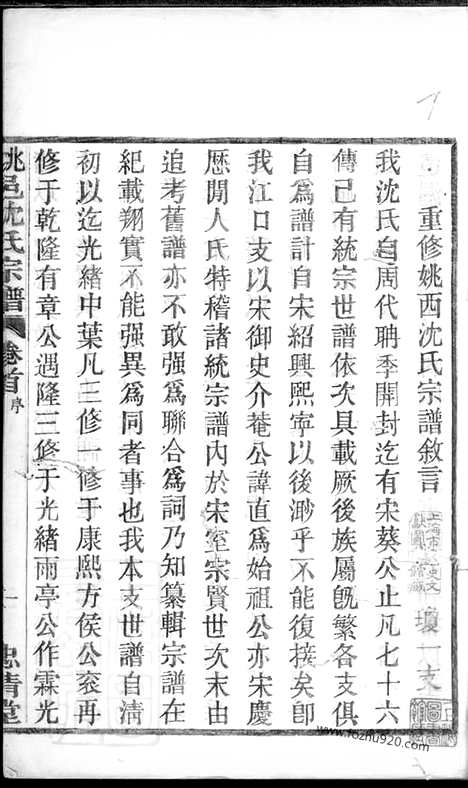 重修姚西沈氏宗譜敘言
瓊一支
我沈氏自周代聃季開封迄有宋葵公止凡七十六
傳已有統宗世譜依次具載厥後族屬旣繁各支俱
自爲譜計自宋紹興熙寧以後渺乎不能復摭矣卽
我江口支以宋御史介菴公諱直爲始祖公亦宋慶
歷閒人氏特稽諸統宗譜內於宋室宗賢世次末由
追考舊譜亦不敢强爲聯合爲詞乃知纂輯宗譜在
紀載翔實不能强異爲同者事也我本支世譜自淸
初以迄光緒中葉凡三修一修于康熙方侯公衮再
修于乾隆有章公遇隆三修于光緒雨亭公作霖光
姚邑沈氏宗譜
卷首
序
一
忠清堂
www.fozhu920.com